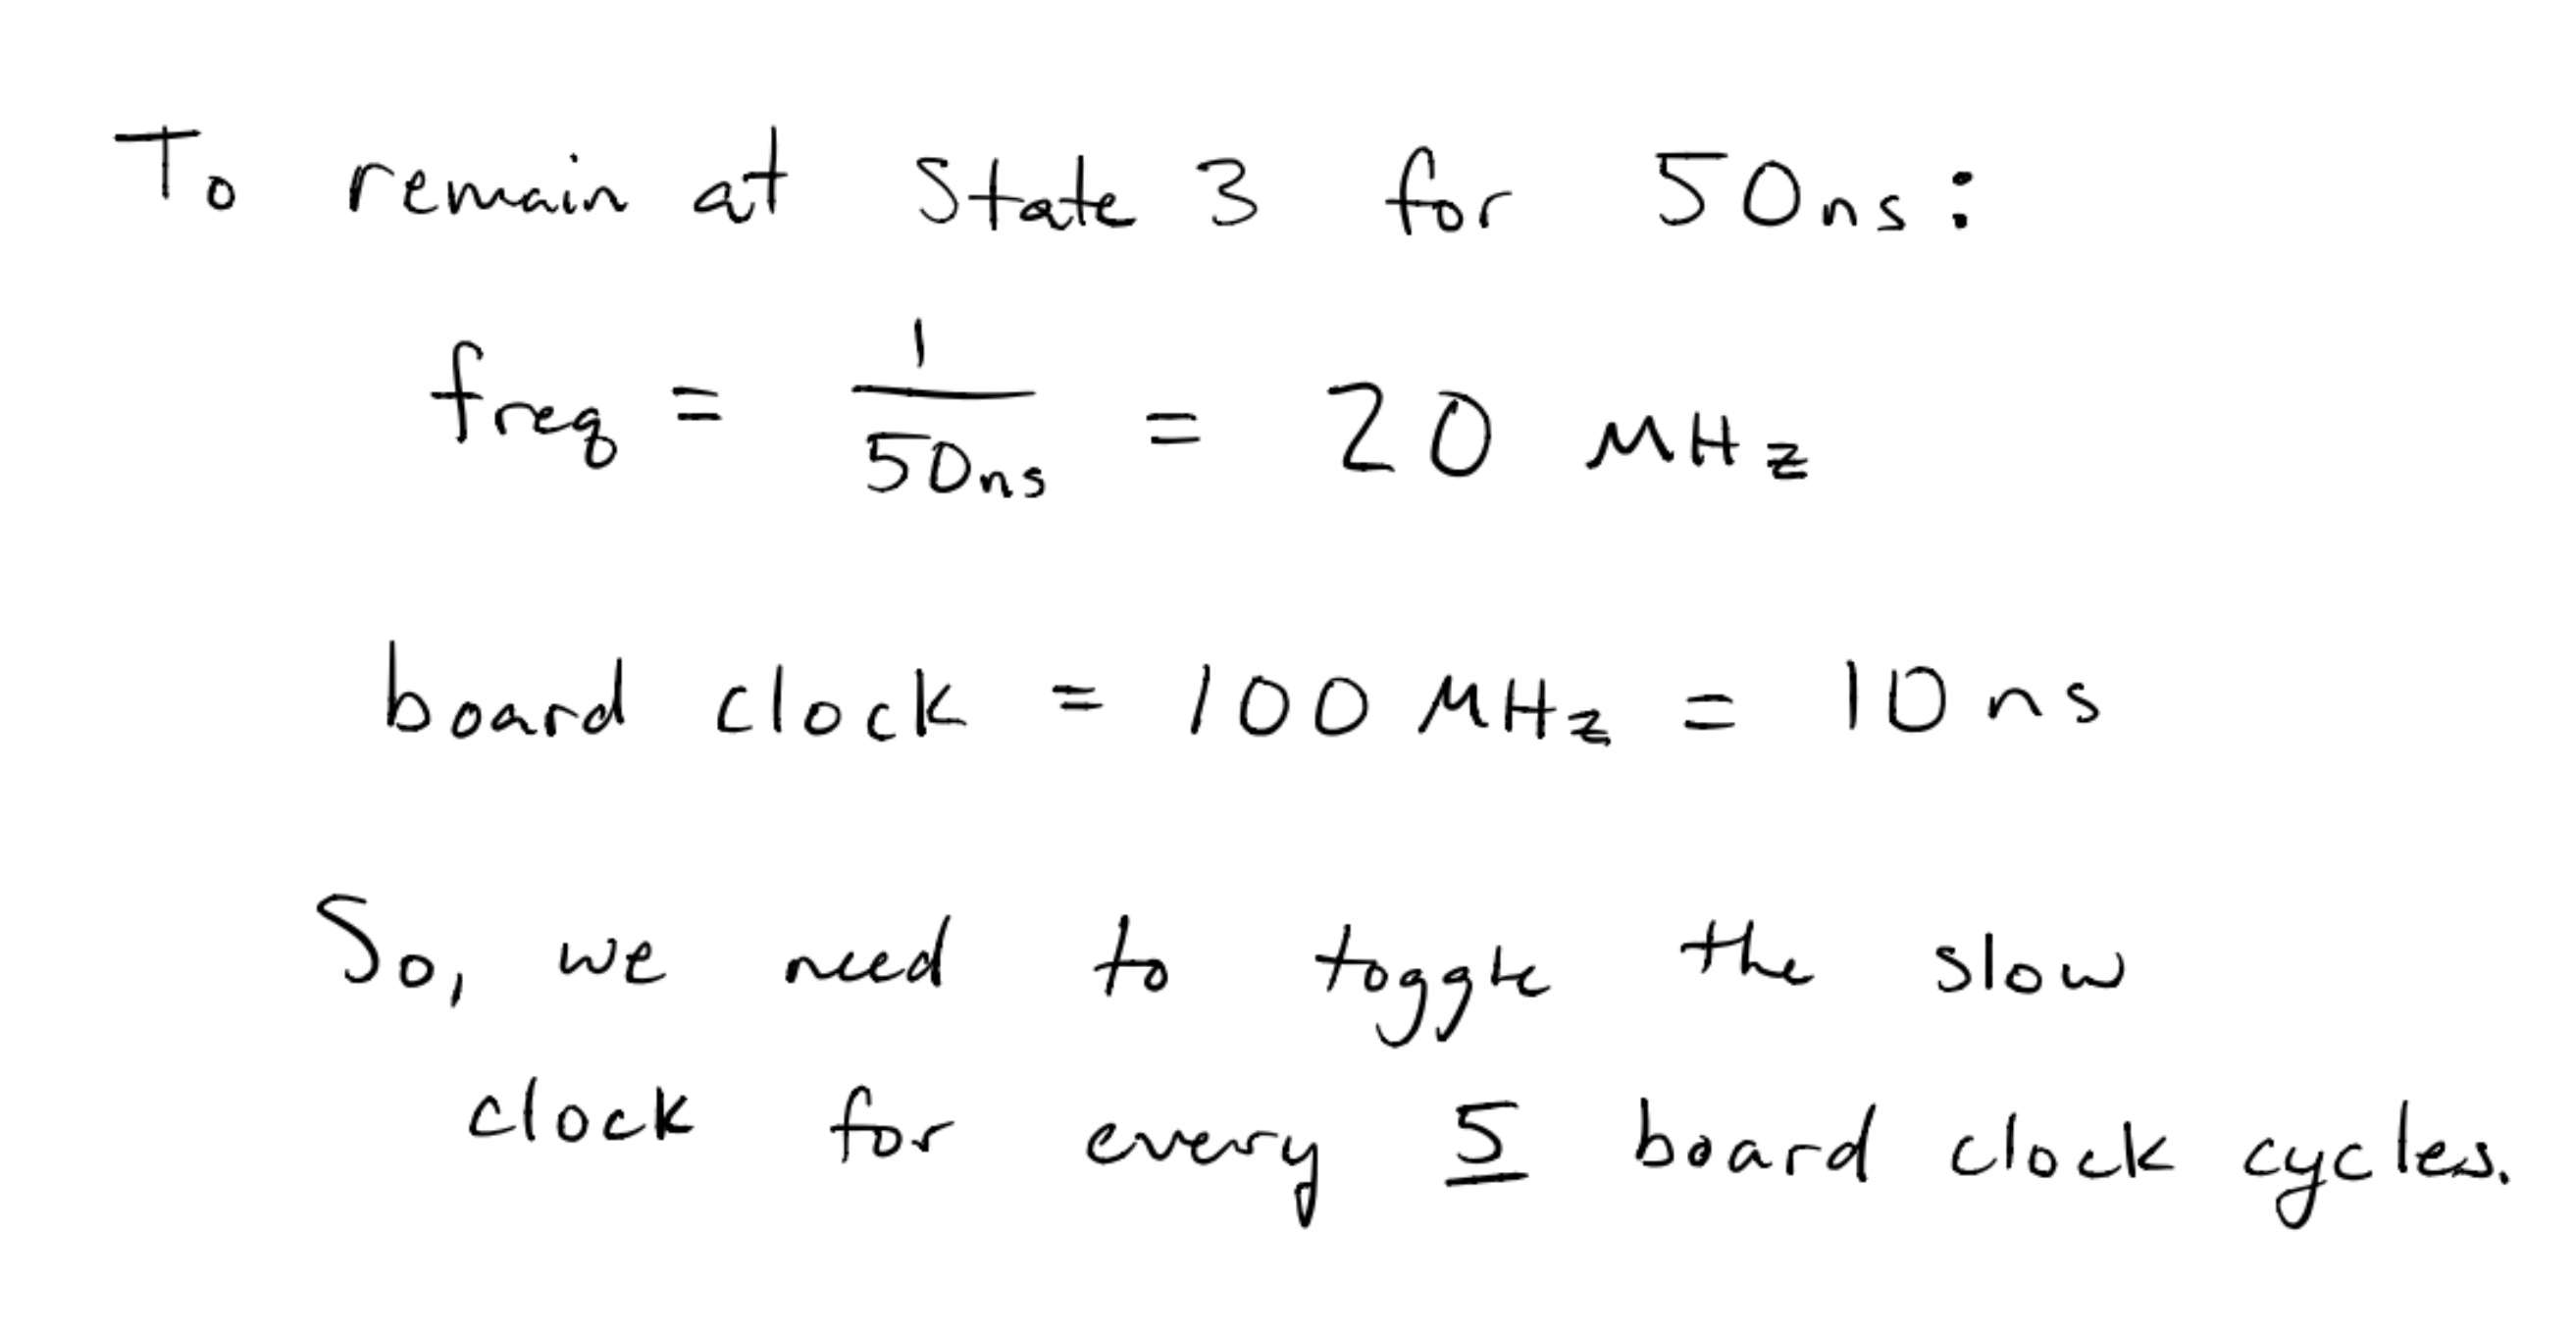 To remain at State 3 for 50ns:
freq = 1/50ns = 20 MHz
board clock = 100 MHz = 10 ns
So, we need to toggle the slow
clock for every 5 board clock cycles.